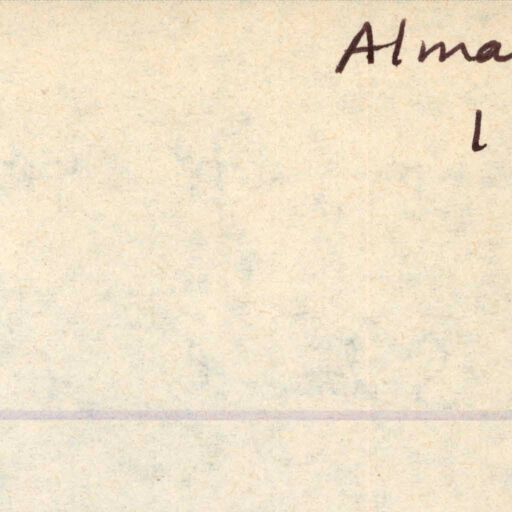 Alma
1